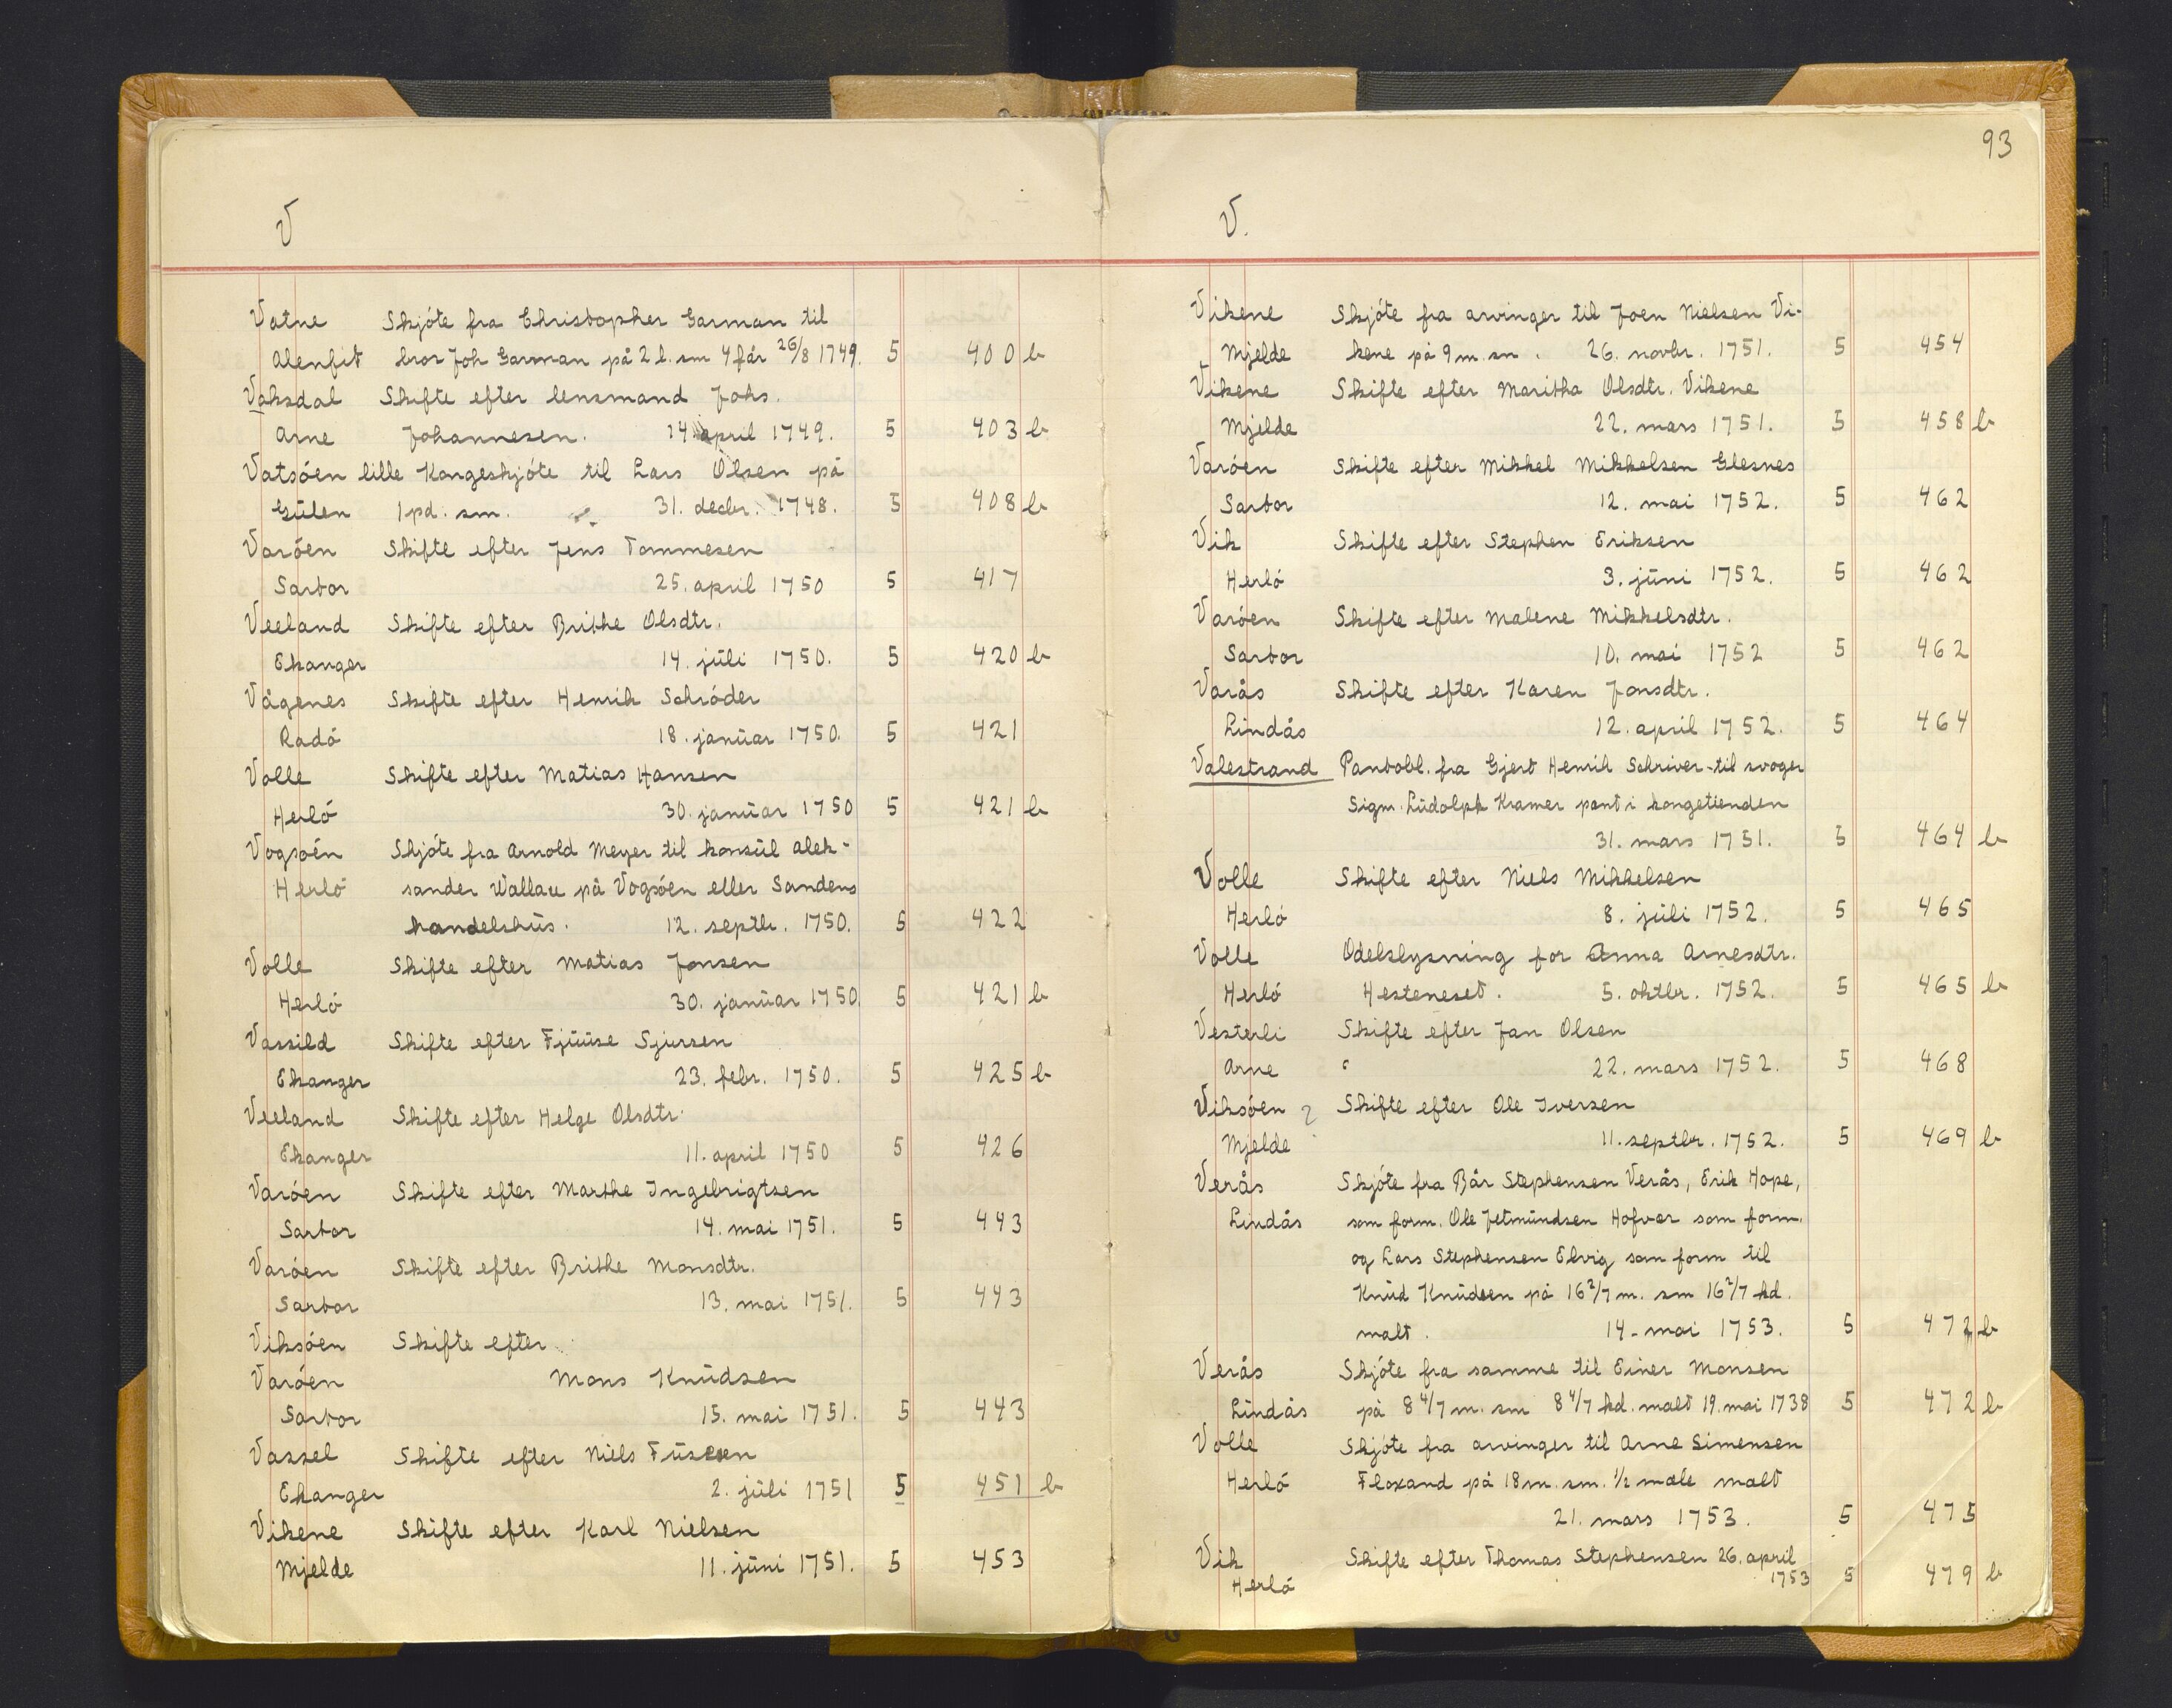 V
Vatne Skjöte fra Christopher Garman til
Alenfit bror Joh Garman på 2 l. sm 4 får 26/8 1749. 5 400 b
Vaksdal Skifte efter lensmand Johs.
Arne Johannesen. 14 april 1749. 5 403 b
Vatsöen lille Kongeskjöte til Lars Olsen på
Gülen 1 pd. sm. 31. decbr. 1748. 5 408 b
Varöen Skifte efter Jens Tommesen
Sartor 25. april 1750 5 417
Veeland Skifte efter Brithe Olsdtr.
Ekanger 14. jüli 1750. 5 420 b
Vågenes Skifte efter Henrik Schröder
Radö 18. janüar 1750. 5 421
Volle Skifte efter Matias Hansen
Herlö 30. janüar 1750 5 421 b
Vogsöen Skjöte fra Arnold Meyer til konsül Alek-
Herlö sander Wallace på Vogsöen eller Sandens
handelshüs. 12. septbr. 1750. 5 422
Volle Skifte efter Matias Jonsen
Herlö 30. janüar 1750 5 421 b
Vassild Skifte efter Fjüüse Sjursen
Ekanger 23. febr. 1750. 5 425 b
Veeland Skifte efter Helge Olsdtr.
Ekanger 11. april 1750 5 426
Varöen Skifte efter Marthe Ingebrigtsen
Sartor 14. mai 1751. 5 443
Varöen Skifte efter Brithe Monsdtr.
Sartor 13. mai 1751. 5 443
Viksöen Skifte efter
Varöen Mons Knüdsen
Sartor 15. mai 1751. 5 443
Vassel Skifte efter Niels Füssen
Ekanger 2. jüli 1751 5 451 b
Vikene Skifte efter Karl Nielsen
Mjelde 11. jüni 1751. 5 453
93
V.
Vikene Skjöte fra arvinger til Joen Nielsen Vi-
Mjelde kene på 9 m. sm. 26. novbr. 1751. 5 454
Vikene Skifte efter Maritha Olsdtr. Vikene
Mjelde 22. mars 1751. 5 458 b
Varöen Skifte efter Mikkel Mikkelsen Glesnes
Sartor 12. mai 1752. 5 462
Vik Skifte efter Stephen Eriksen
Herlö 3. jüni 1752. 5 462
Varöen Skifte efter Malene Mikkelsdtr.
Sartor 10. mai 1752 5 462
Varås Skifte efter Karen Jonsdtr.
Lindås 12. april 1752. 5 464
Valestrand Pantobl. fra Gjert Henrik Schriver til svoger
Sigm. Lüdolph Kramer pant i kongetienden
31. mars 1751. 5 464 b
Volle Skifte efter Niels Mikkelsen
Herlö 8. jüli 1752. 5 465
Volle Odelslysning for Anna Arnesdtr.
Herlö Hesteneset. 5. oktbr. 1752. 5 465 b
Vesterli Skifte efter Jan Olsen
Arne 22. mars 1752. 5 468
Viksöen ? Skifte efter Ole Iversen
Mjelde 11. septbr. 1752. 5 469 b
Verås Skjöte fra Bår Stephensen Verås, Erik Hope,
Lindås som form. Ole Jetmündsen Hofvar som form.
og Lars Stephensen Elvig som form til
Knüd Knüdsen på 16 2/7 m. sm 16 2/7 kd.
malt. 14. mai 1753. 5 472 b
Verås Skjöte fra samme til Einer Monsen
Lindås på 8 4/7 m. sm 8 4/7 kd. malt 19. mai 1738 5 472 b
Volle Skjöte fra arvinger til Arne Simensen
Herlö Floxand på 18 m. sm. 1/2 mæle malt
21. mars 1753. 5 475
Vik Skifte efter Thomas Stephensen 26. april
Herlö 1753 5 479 b